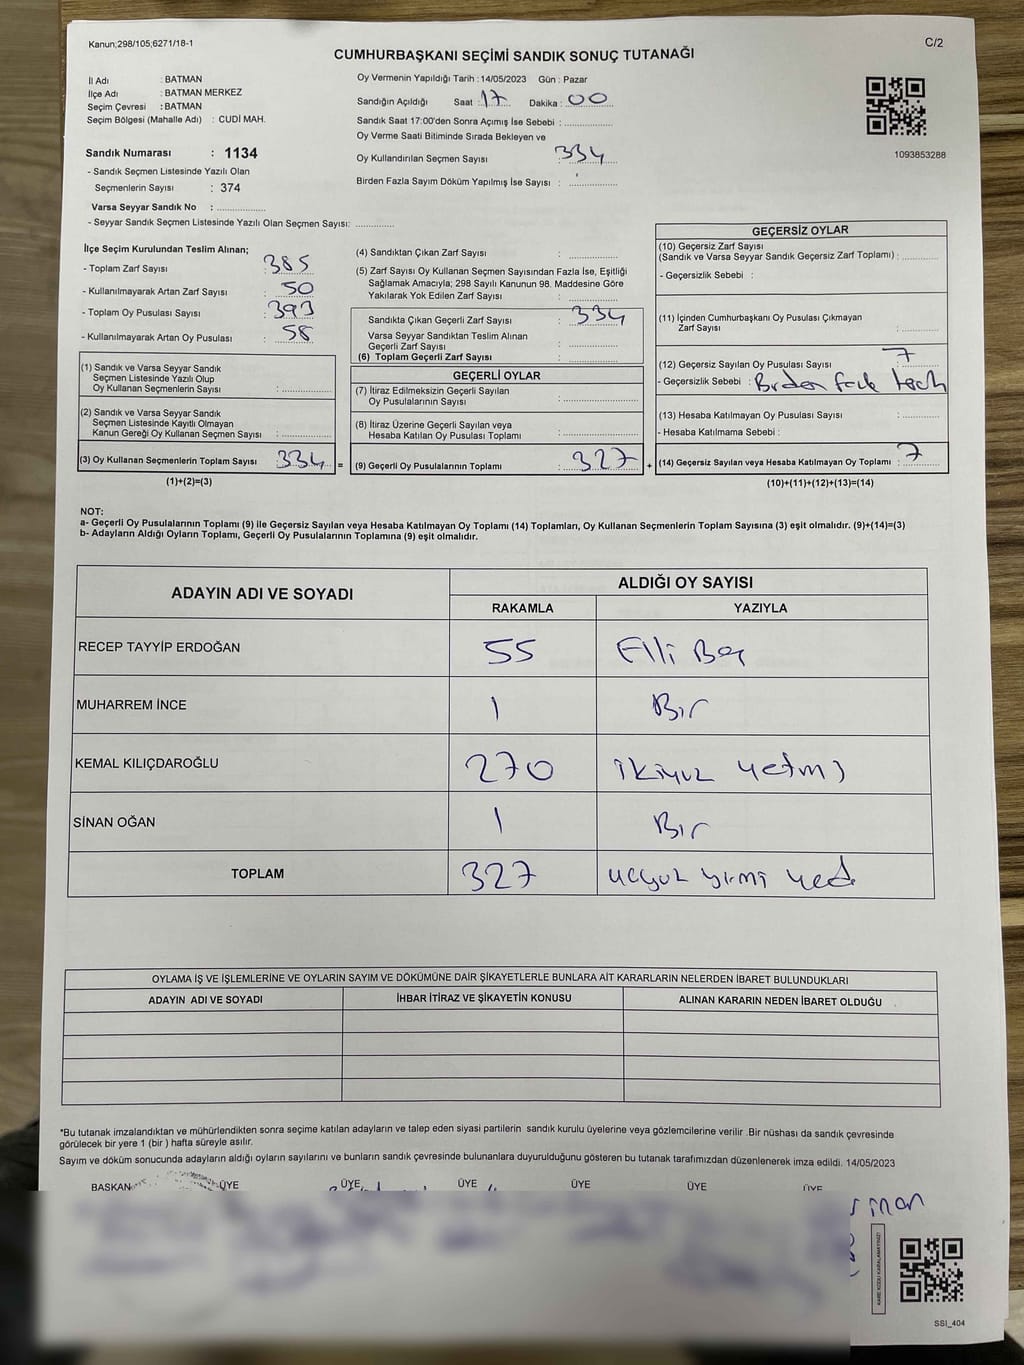 Kanun;298/105;6271/18-1
C/2
CUMHURBAŞKANI SEÇİMİ SANDIK SONUÇ TUTANAĞI
İl Adı : BATMAN
İlçe Adı : BATMAN MERKEZ
Seçim Çevresi : BATMAN
Seçim Bölgesi (Mahalle Adı) : CUDİ MAH.
Sandık Numarası : 1134
- Sandık Seçmen Listesinde Yazılı Olan
Seçmenlerin Sayısı : 374
Varsa Seyyar Sandık No :
- Seyyar Sandık Seçmen Listesinde Yazılı Olan Seçmen Sayısı:
Oy Vermenin Yapıldığı Tarih : 14/05/2023 Gün : Pazar
Sandığın Açıldığı Saat : 17 Dakika : 00
Sandık Saat 17:00'den Sonra Açımış İse Sebebi :
Oy Verme Saati Bitiminde Sırada Bekleyen ve
Oy Kullandırılan Seçmen Sayısı 334
Birden Fazla Sayım Döküm Yapılmış İse Sayısı :
1093853288
İlçe Seçim Kurulundan Teslim Alınan;
- Toplam Zarf Sayısı : 385
- Kullanılmayarak Artan Zarf Sayısı : 50
- Toplam Oy Pusulası Sayısı : 393
- Kullanılmayarak Artan Oy Pusulası : 58
(1) Sandık ve Varsa Seyyar Sandık
Seçmen Listesinde Yazılı Olup
Oy Kullanan Seçmenlerin Sayısı :
(2) Sandık ve Varsa Seyyar Sandık
Seçmen Listesinde Kayıtlı Olmayan
Kanun Gereği Oy Kullanan Seçmen Sayısı :
(3) Oy Kullanan Seçmenlerin Toplam Sayısı 334 =
(1)+(2)=(3)
(4) Sandıktan Çıkan Zarf Sayısı :
(5) Zarf Sayısı Oy Kullanan Seçmen Sayısından Fazla İse, Eşitliği
Sağlamak Amacıyla; 298 Sayılı Kanunun 98. Maddesine Göre
Yakılarak Yok Edilen Zarf Sayısı :
Sandıkta Çıkan Geçerli Zarf Sayısı : 334
Varsa Seyyar Sandıktan Teslim Alınan
Geçerli Zarf Sayısı :
(6) Toplam Geçerli Zarf Sayısı :
GEÇERLİ OYLAR
(7) İtiraz Edilmeksizin Geçerli Sayılan
Oy Pusulalarının Sayısı :
(8) İtiraz Üzerine Geçerli Sayılan veya
Hesaba Katılan Oy Pusulası Toplamı :
(9) Geçerli Oy Pusulalarının Toplamı : 327 +
GEÇERSİZ OYLAR
(10) Geçersiz Zarf Sayısı
(Sandık ve Varsa Seyyar Sandık Geçersiz Zarf Toplamı) :
- Geçersizlik Sebebi :
(11) İçinden Cumhurbaşkanı Oy Pusulası Çıkmayan
Zarf Sayısı :
(12) Geçersiz Sayılan Oy Pusulası Sayısı : 7
- Geçersizlik Sebebi : Birden
(13) Hesaba Katılmayan Oy Pusulası Sayısı :
- Hesaba Katılmama Sebebi :
(14) Geçersiz Sayılan veya Hesaba Katılmayan Oy Toplamı : 7
(10)+(11)+(12)+(13)=(14)
NOT:
a- Geçerli Oy Pusulalarının Toplamı (9) ile Geçersiz Sayılan veya Hesaba Katılmayan Oy Toplamı (14) Toplamları, Oy Kullanan Seçmenlerin Toplam Sayısına (3) eşit olmalıdır. (9)+(14)=(3)
b- Adayların Aldığı Oyların Toplamı, Geçerli Oy Pusulalarının Toplamına (9) eşit olmalıdır.
ADAYIN ADI VE SOYADI ALDIĞI OY SAYISI
RAKAMLA YAZIYLA
RECEP TAYYİP ERDOĞAN 55 Elli Beş
MUHARREM İNCE 1 Bir
KEMAL KILIÇDAROĞLU 270 ikiyüz yetmş
SİNAN OĞAN 1 Bir
TOPLAM 327 üçyüz yirmi yedi
OYLAMA İŞ VE İŞLEMLERİNE VE OYLARIN SAYIM VE DÖKÜMÜNE DAİR ŞİKAYETLERLE BUNLARA AİT KARARLARIN NELERDEN İBARET BULUNDUKLARI
ADAYIN ADI VE SOYADI İHBAR İTİRAZ VE ŞİKAYETİN KONUSU ALINAN KARARIN NEDEN İBARET OLDUĞU
*Bu tutanak imzalandıktan ve mühürlendikten sonra seçime katılan adayların ve talep eden siyasi partilerin sandık kurulu üyelerine veya gözlemcilerine verilir .Bir nüshası da sandık çevresinde
görülecek bir yere 1 (bir ) hafta süreyle asılır.
Sayım ve döküm sonucunda adayların aldığı oyların sayılarını ve bunların sandık çevresinde bulunanlara duyurulduğunu gösteren bu tutanak tarafımızdan düzenlenerek imza edildi. 14/05/2023
BAŞKAN ÜYE ÜYE ÜYE ÜYE ÜYE ÜYE
KARE KODU KARALAMAYINIZ!
SSI_404